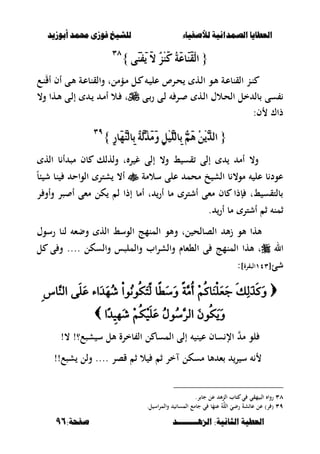 العطايا الصمدانية للأصفياء
للشيخ فوزى محمد أبوزيد
{ الْقَنَاعَةُ كَنْزٌ لَا يَفْنَى } ٣٨
كنز القناعة هو الذى يحرص عليه كل مؤمن، والقناعة هى أن أقنع
نفسى بالدخل الحلال الذى صرفه لى ربى ﷺ، فلا أمد يدى إلى هذا ولا
ذاك لأن:
{ الدَّيْنُ هَمٌّ بِاللَّيْلِ وَمَذَلَّةٌ بِالنَّهَارِ } ٣٩
ولا أمد يدى إلى تقسيط ولا إلى غيره، ولذلك كان مبدأنا الذى
عودنا عليه مولانا الشيخ محمد على سلامة ألا يشترى الواحد فينا شيئاً
بالتقسيط، فإذا كان معى أشترى ما أريد، أما إذا لم يكن معى أصبر وأوفر
ثمنه ثم أشترى ما أريد.
هذا هو زهد الصالحين، وهو المنهج الوسط الذى وضعه لنا رسول
الله ﷺ، هذا المنهج فى الطعام والشراب والملبس والسكن .... وفى كل
شئ[١٤٣البقرة]:
﴿ وَكَذَلِكَ جَعَلْنَاكُمْ أُمَّةً وَسَطًا لِّتَكُونُواْ شُهَدَاء عَلَى النَّاسِ
وَيَكُونَ الرَّسُولُ عَلَيْكُمْ شَهِيدًا ﴾
فلو مدَّ الإنسان عينيه إلى المساكن الفاخرة هل سيشبع؟! لا!
لأنه سيريد بعدها مسكن آخر ثم فيلا ثم قصر .... ولن يشبع!!
٣٨ رواه البيهقى فى كتاب الزهد عن جابر.
٣٩ (فر) عن عائشة رضىَ اللَّهُ عنها فى جامع المسانيد والمراسيل
العطية الثانية: الزهـــــد
صفحة:٩٦